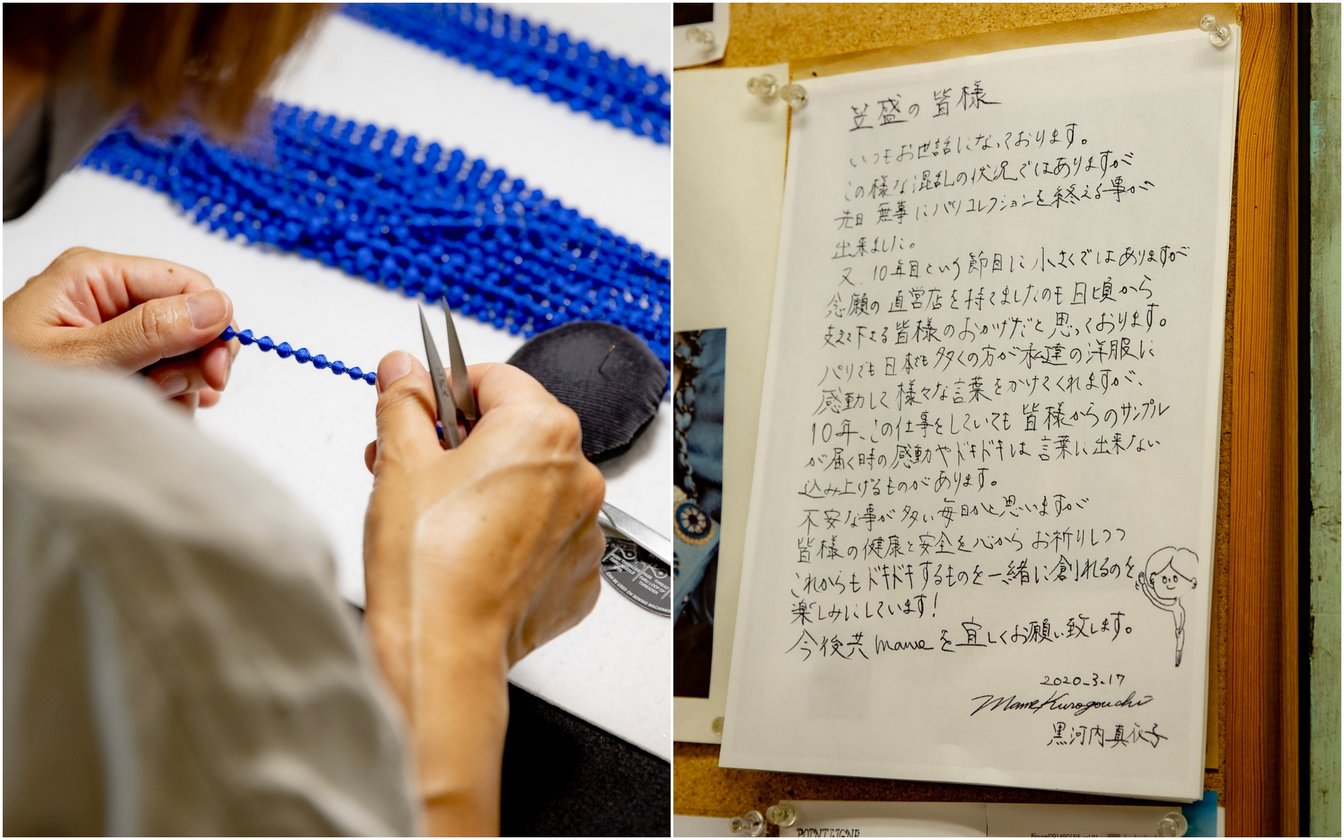 笠盛の皆様
いつもお世話になっております。
この様な混乱の状況ではありますが
先日 無事にパリコレクションを終える事が
出来ました。
又、10年目という節目に小さくではありますが
念願の直営店を持てましたのも日頃から
支えて下さる皆様のおかげだと思っております。
パリでも日本でも多くの方が私達の洋服に
感動して様々な言葉をかけてくれますが、
10年、この仕事をしていても皆様からのサンプル
が届く時の感動やドキドキは言葉に出来ない
込み上げるものがあります。
不安な事が多い毎日かと思いますが
皆様の健康と安全を心からお祈りしつつ
これからもドキドキするものを一緒に創れるのを
楽しみにしています!
今後共 mame を宜しくお願い致します。
2020.3.17
Mame Kurogouchi
黒河内真衣子